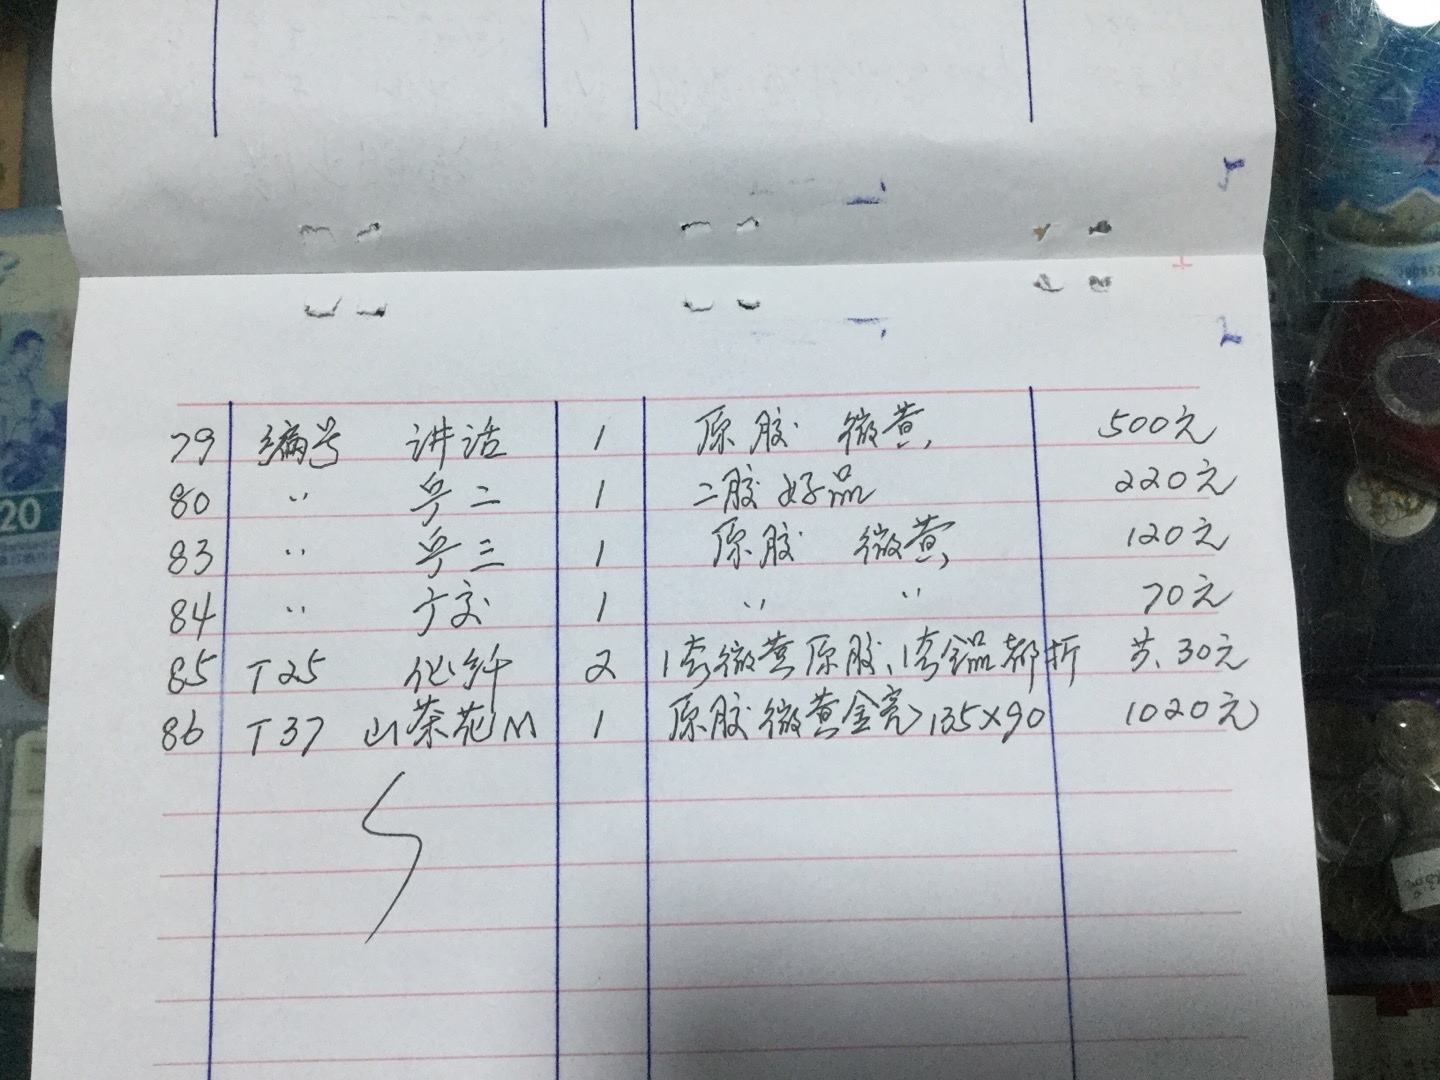 79 编号 讲话 1 原胶 微黄 500元
80 〃 乒二 1 二胶好品 220元
83 〃 乒三 1 原胶 微黄 120元
84 〃 广交 1 〃 〃 70元
85 T25 化纤 2 1套微黄原胶、1套全品都折 共30元
86 T37 山茶花M 1 原胶微黄金亮 135×90 1020元
20